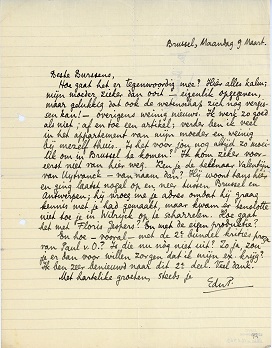 Brussel, Maandag 9 Maart.
Beste Burssens,
Hoe gaat het er tegenwoordig mee? Hier alles kalm;
mijn moeder zieker dan ooit – eigenlijk opgegeven,
maar gelukkig dat ook de wetenschap zich nog vergis-
sen kan! – overigens weinig nieuws. Ik werk zo goed
als niet, af en toe een artikel; verder ben ik veel
in het appartement van mijn moeder en weinig
bij mezelf thuis. Is het voor jou nog altijd zo moei-
lik om in Brussel te komen? Ik kom zeker voor-
eerst niet van hier weg. Ken je de tekenaar Valentijn
van Uytvanck – van naam dan? Hij woont hier
en ging laatst nogal op en neer tussen Brussel en
Antwerpen; hij vroeg me je adres omdat hij graag
kennis met je had gemaakt, maar kwam er tenslotte
niet toe je in Wilrijck op te scharrelen. Hoe gaat
het met Floris Jespers? En met de eigen produktie?
En hoe – vooral – met de 2e bundel kritis proza
van Paul v.O.? Is die nu nog niet uit? Zo ja, zou
je er dan voor willen zorgen dat ik mijn ex. krijg?
Ik ben zeer benieuwd naar dit 2e deel. Veel dank.
Met hartelike groeten, steeds je